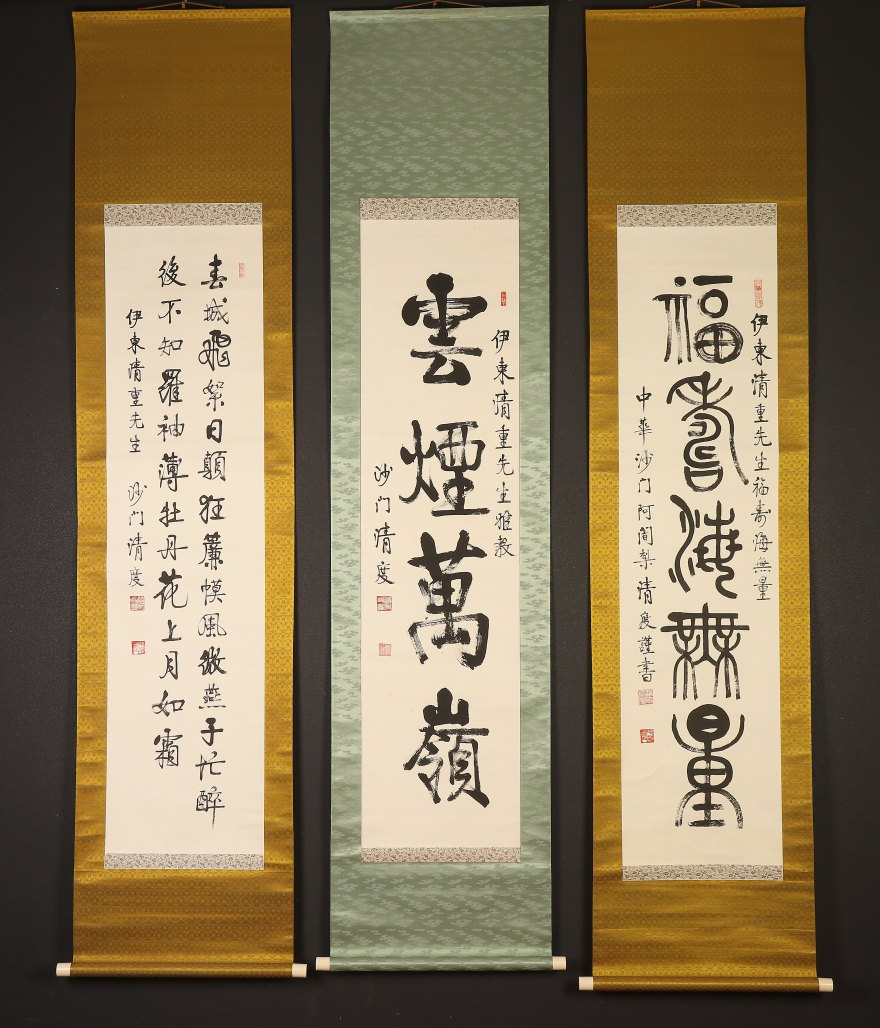 伊東清重先生福壽海無量
福壽海無量
中華沙门阿闍梨清度謹書
伊東清重先生雅教
雲煙萬嶺
沙门清度
春城飛絮日顛狂簾幙風微燕子忙醉
後不知羅袖薄牡丹花上月如霜
伊東清重先生 沙门清度